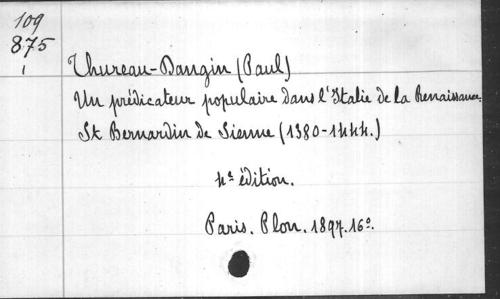 109
875
1
Thureau-Dangin (Paul)
Un prédicateur populaire dans l'Italie de la Renaissance.
St Bernardin de Sienne (1380-1444.)
4e édition.
Paris. Plon. 1897. 16o.